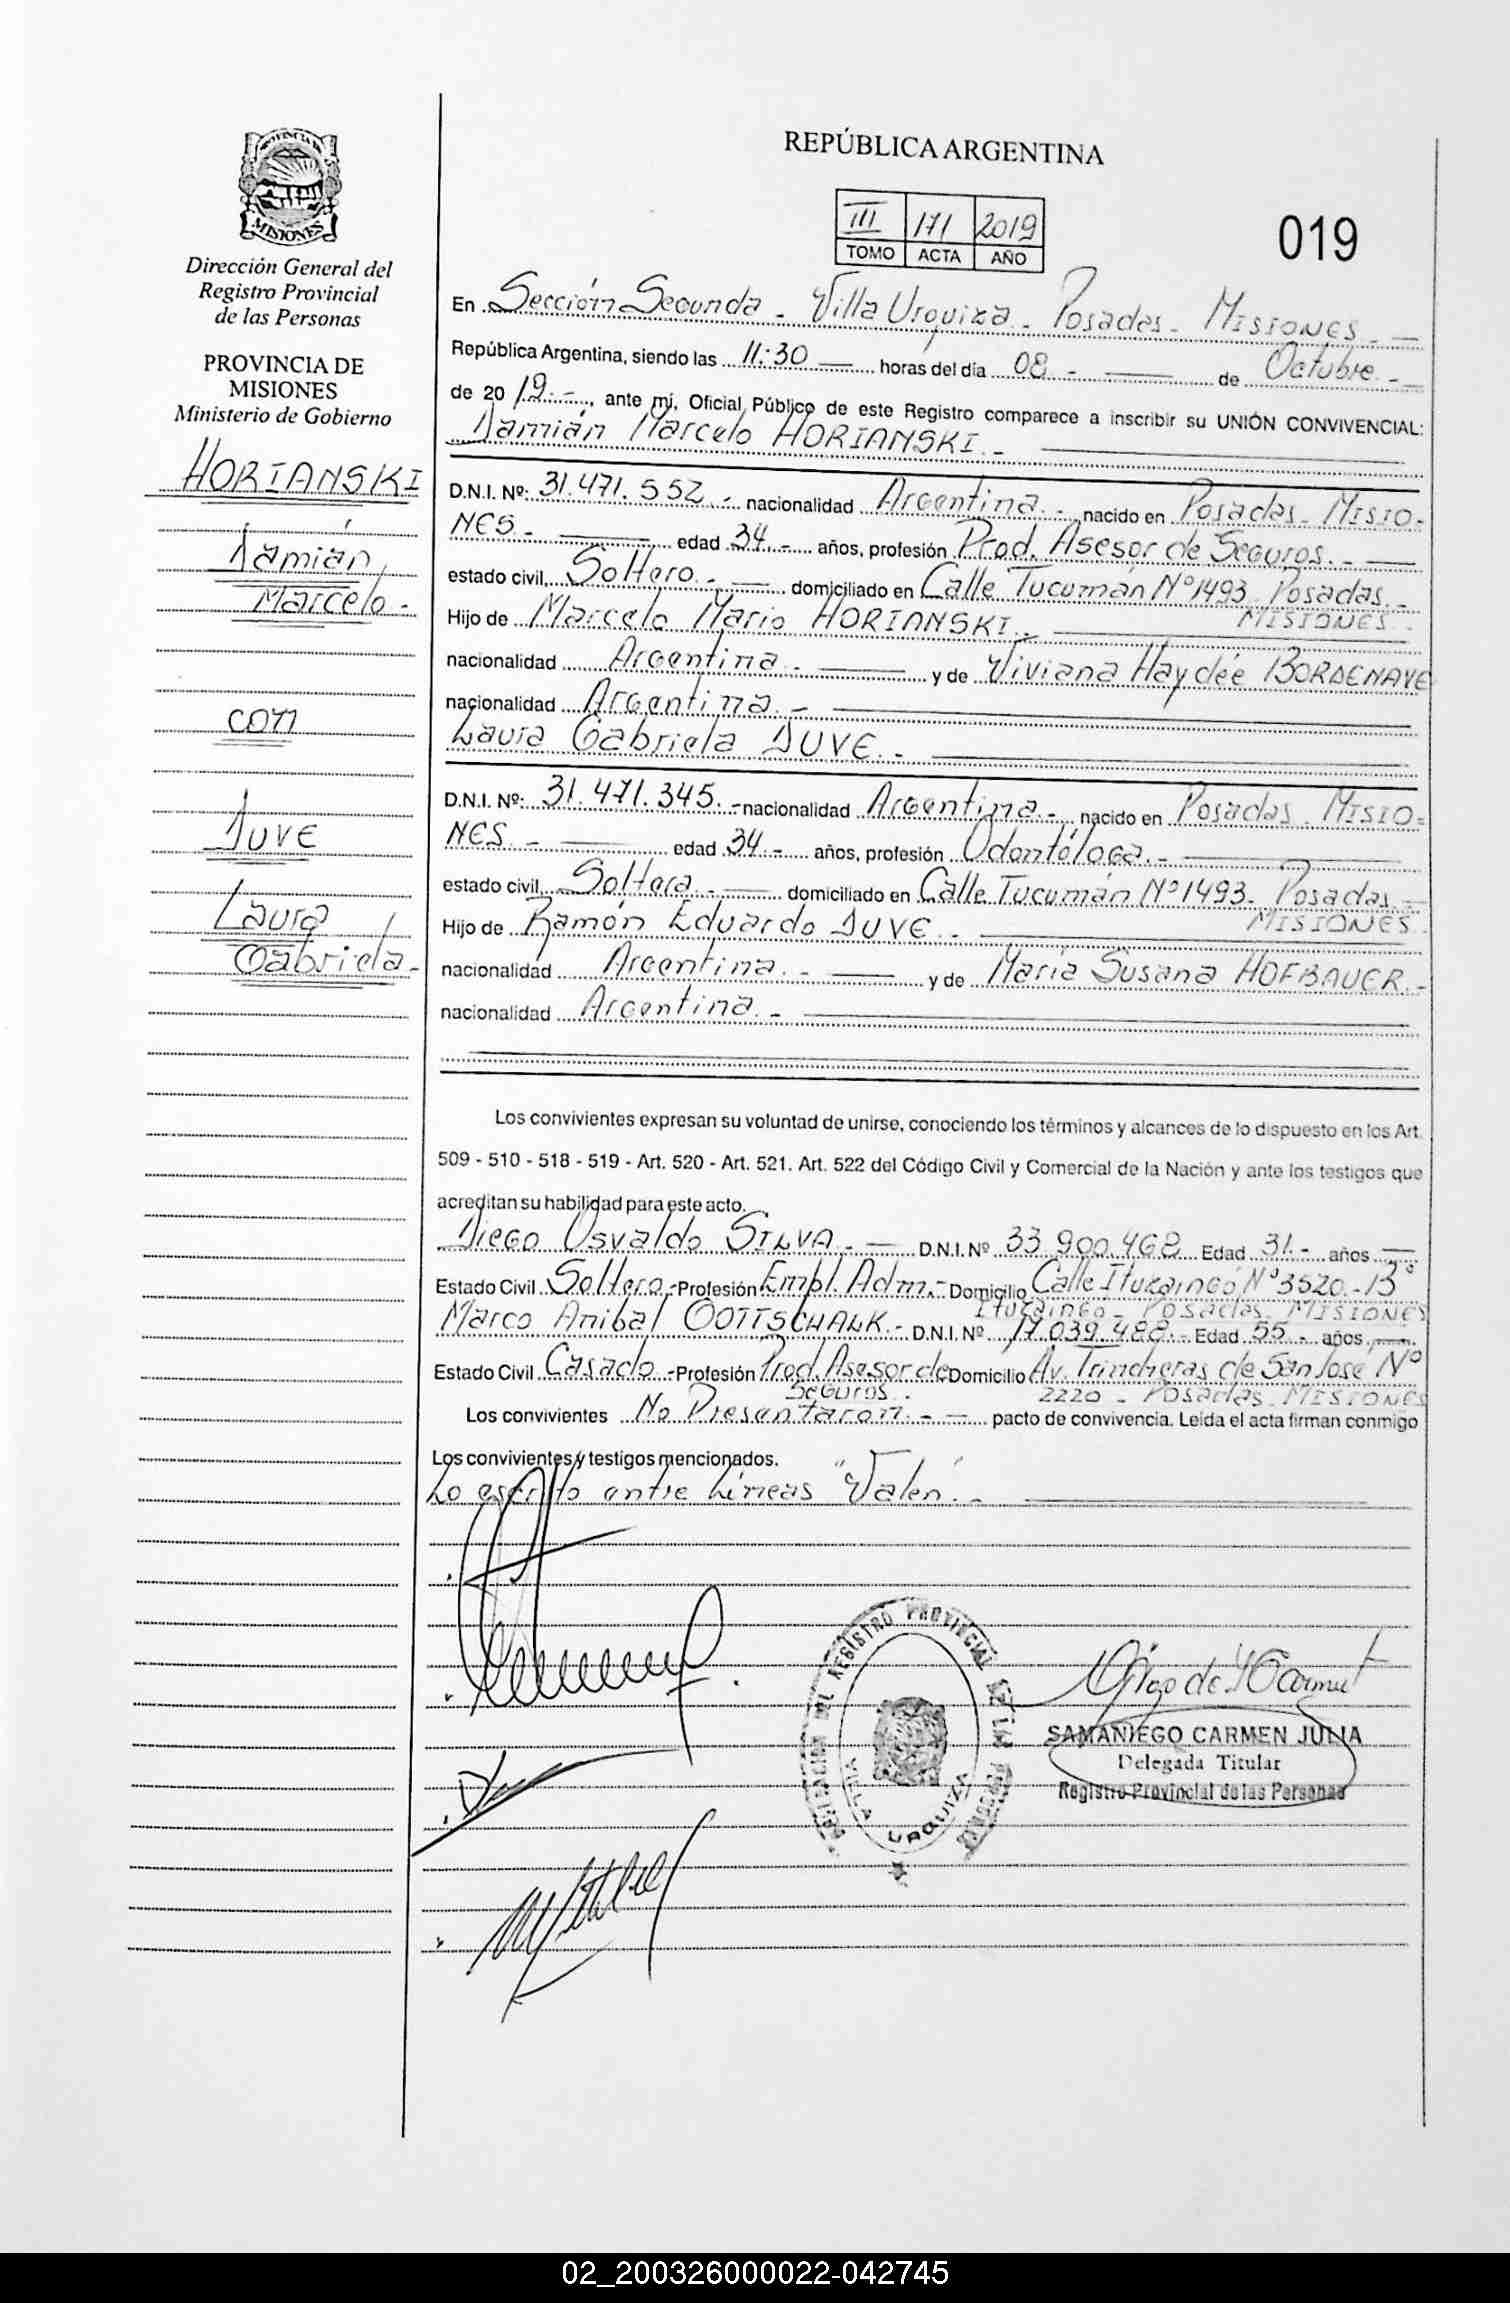 PROVINCIA DE
MISIONES
Dirección General del
Registro Provincial
de las Personas
PROVINCIA DE
MISIONES
Ministerio de Gobierno
HORIANSKI
Damián
Marcelo.-
con
DUVE
Laura
Gabriela.-
REPÚBLICA ARGENTINA
III 171 2019
TOMO ACTA AÑO
019
En Sección Segunda - Villa Urquiza - Posadas - MISIONES. -
República Argentina, siendo las 11:30 horas del día 08.- de Octubre.-
de 2019.-, ante mí, Oficial Público de este Registro comparece a inscribir su UNIÓN CONVIVENCIAL:
Damián Marcelo HORIANSKI.-
D.N.I. Nº: 31.471.552.- nacionalidad Argentina.- nacido en Posadas - MISIO-
NES.- edad 34.- años, profesión Prod. Asesor de Seguros.-
estado civil, Soltero.- domiciliado en Calle Tucumán Nº 1493 - Posadas.-
MISIONES.-
Hijo de Marcelo Mario HORIANSKI.-
nacionalidad Argentina.- y de Viviana Haydée BORDENAVE
nacionalidad Argentina.-
Laura Gabriela DUVE.-
D.N.I. Nº: 31.471.345.- nacionalidad Argentina.- nacido en Posadas - MISIO-
NES.- edad 34.- años, profesión Odontóloga.-
estado civil, Soltera.- domiciliado en Calle Tucumán Nº 1493 - Posadas.-
MISIONES.
Hijo de Ramón Eduardo DUVE.-
nacionalidad Argentina.- y de María Susana HOFBAUER.-
nacionalidad Argentina.-
Los convivientes expresan su voluntad de unirse, conociendo los términos y alcances de lo dispuesto en los Art.
509 - 510 - 518 - 519 - Art. 520 - Art. 521. Art. 522 del Código Civil y Comercial de la Nación y ante los testigos que
acreditan su habilidad para este acto.
Diego Osvaldo SILVA.- D.N.I. Nº 33.900.468 Edad 31.- años
Estado Civil Soltero.- Profesión Empl. Adm.- Domicilio Calle Ituzaingó Nº 3520.- Bº
Ituzaingó - Posadas - MISIONES
Marco Anibal GOTTSCHALK.- D.N.I. Nº 17.039.488.- Edad 55.- años
Estado Civil Casado.- Profesión Prod. Asesor de Domicilio Av. Trincheras de San José Nº
Seguros.- 2220 - Posadas - MISIONES
Los convivientes No Presentaron.- pacto de convivencia. Leída el acta firman conmigo
Los convivientes y testigos mencionados.
Lo escrito entre Líneas "Valen".-
DELEGACION DEL REGISTRO PROVINCIAL DE LAS PERSONAS
VILLA URQUIZA
SAMANIEGO CARMEN JULIA
Delegada Titular
Registro Provincial de las Personas
02_200326000022-042745